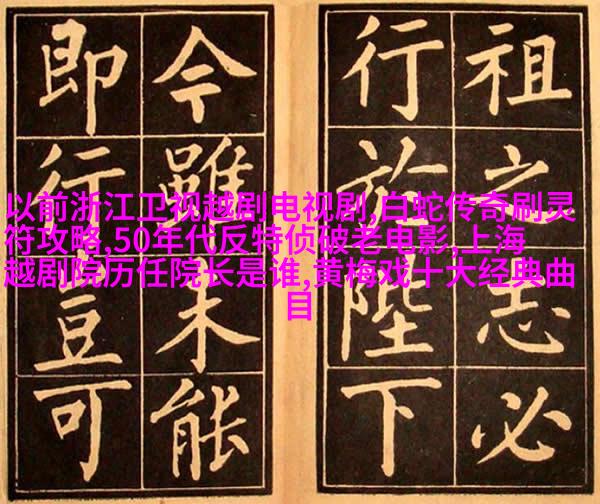 祖之志必
行於陛下
今雖未能
即行豈可
以前浙江卫视越剧电视剧,白蛇传奇刷灵
符攻略,50年代反特侦破老电影,上海
越剧院历任院长是谁,黄梅戏十大经典曲
目